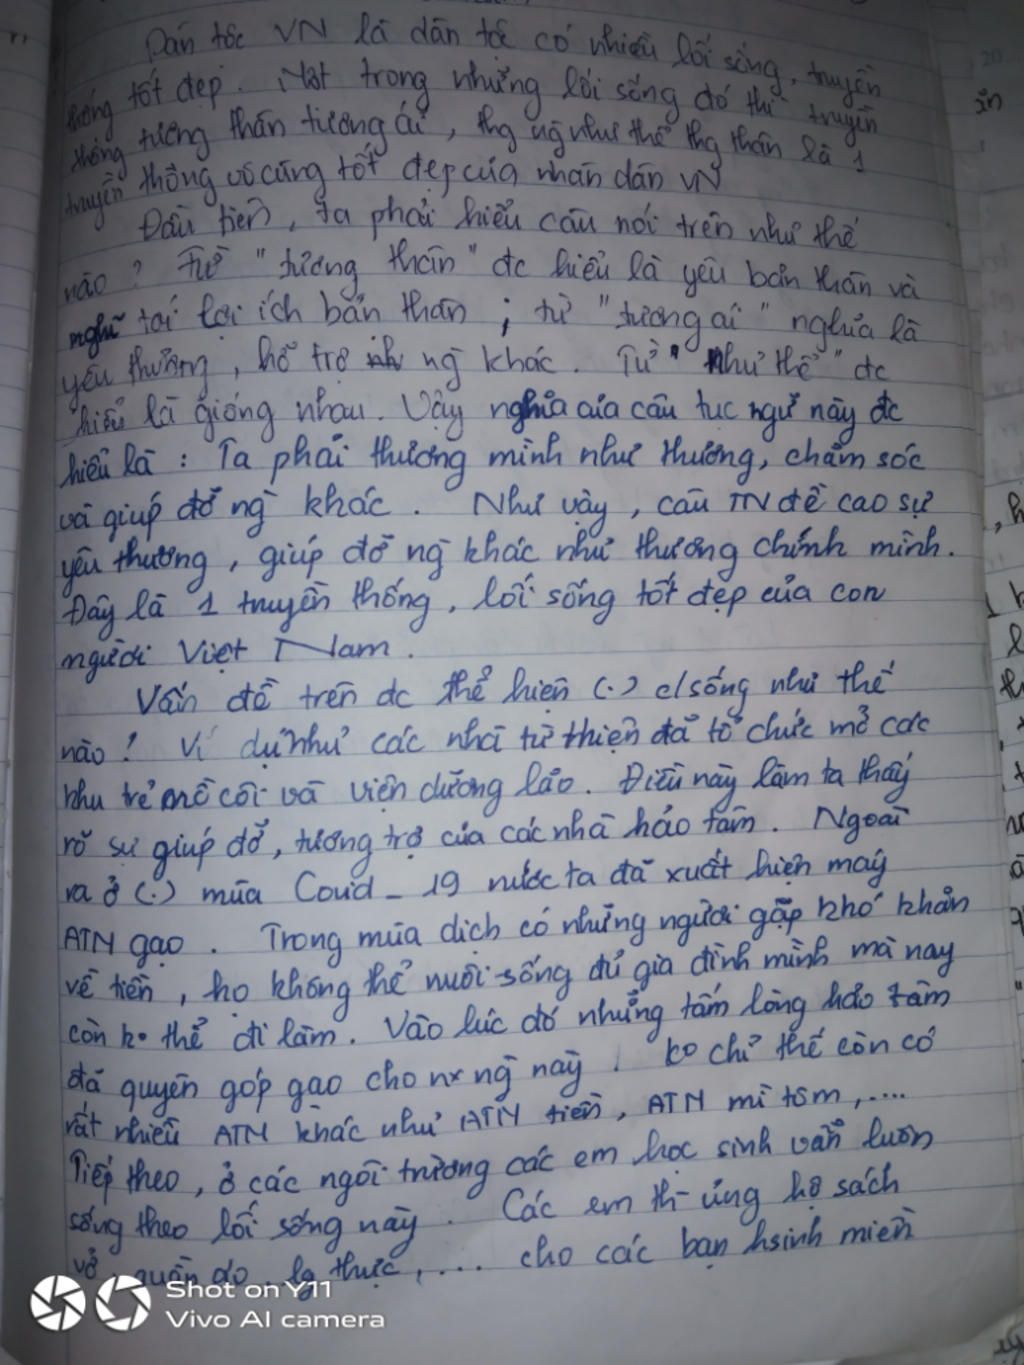 Dân tộc VN là dân tộc có nhiều lối sống, truyền
thống tốt đẹp. Một trong những lối sống đó thì truyền
thống tương thân tương ái, thg ng như thể thg thân là 1
truyền thống vô cùng tốt đẹp của nhân dân VN
Đầu tiên, ta phải hiểu câu nói trên như thế
nào? Từ "tương thân" đc hiểu là yêu bản thân và
nghĩ tới lợi ích bản thân; từ "tương ái" nghĩa là
yêu thương, hỗ trợ ng khác. Từ "như thể" đc
hiểu là giống nhau. Vậy nghĩa của câu tục ngữ này đc
hiểu là: Ta phải thương mình như thương, chăm sóc
và giúp đỡ ng khác. Như vậy, câu TN đề cao sự
yêu thương, giúp đỡ ng khác như thương chính mình.
Đây là 1 truyền thống, lối sống tốt đẹp của con
người Việt Nam.
Vấn đề trên đc thể hiện (.) c/sống như thế
nào? Ví dụ như các nhà từ thiện đã tổ chức mở các
khu trẻ mồ côi và viện dưỡng lão. Điều này làm ta thấy
rõ sự giúp đỡ, tương trợ của các nhà hảo tâm. Ngoài
ra ở (.) mùa Covid_19 nước ta đã xuất hiện máy
ATM gạo. Trong mùa dịch có những người gặp khó khăn
về tiền, họ không thể nuôi sống đủ gia đình mình mà nay
còn ko thể đi làm. Vào lúc đó những tấm lòng hảo tâm
đã quyên góp gạo cho nx ng này. ko chỉ thế còn có
rất nhiều ATM khác như ATM tiền, ATM mì tôm,....
Tiếp theo, ở các ngôi trường các em học sinh vẫn luôn
sống theo lối sống này. Các em ủng hộ sách
vở, quần áo, lg thực,... cho các bạn hsinh miền
Shot on Y11
Vivo AI camera